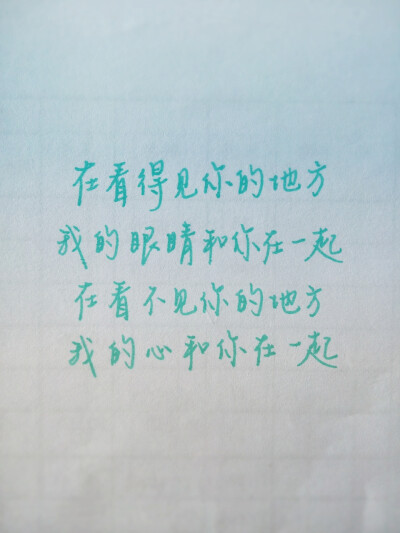 在看得见你的地方
我的眼睛和你在一起
在看不见你的地方
我的心和你在一起